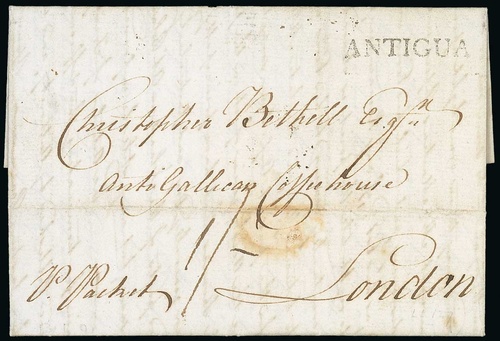 ANTIGUA
Christopher Bethell Esqr
Anti Gallican Coffeehouse
1/-
London
P. Packet